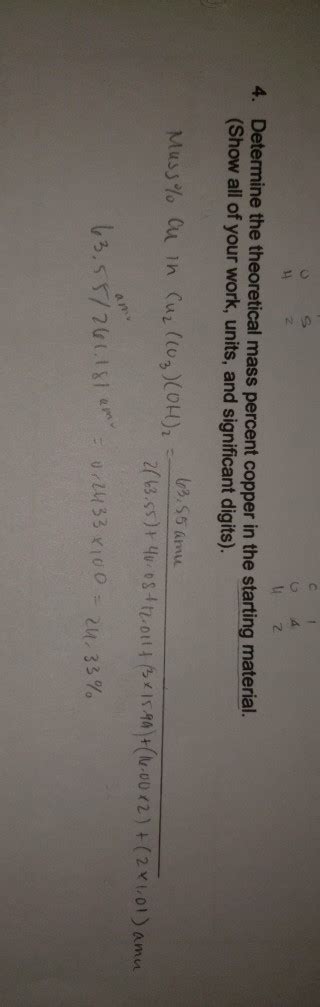 O 5
H 2
C 1
O 4
H 2
4. Determine the theoretical mass percent copper in the starting material.
(Show all of your work, units, and significant digits).
Mass % Cu in Cu2(CO3)(OH)2 = 63.55 amu
2(63.55)+40.08+12.011+(3x15.99)+(16.00x2)+(2x1.01) amu
63.55/261.181 amu = 0.2433 x 100 = 24.33%
amu